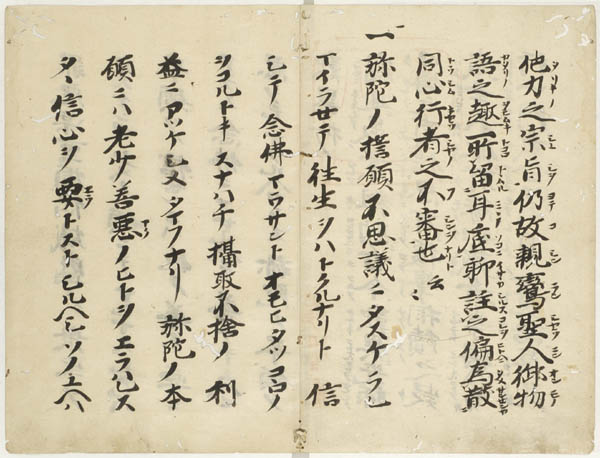 他力之宗旨仍故親鸞聖人御物
語之趣所留耳底聊註之偏為散
同心行者之不審也云々
一 弥陀ノ誓願不思議ニタスケラレ
マイラセテ往生ヲハトクルナリト信
シテ念佛マウサントオモヒタツコヽロノ
ヲコルトキスナハチ攝取不捨ノ利
益ニアツケシメタマフナリ弥陀ノ本
願ニハ老少善悪ノヒトヲエラハレス
タヽ信心ヲ要トストシルヘシソノユヘハ